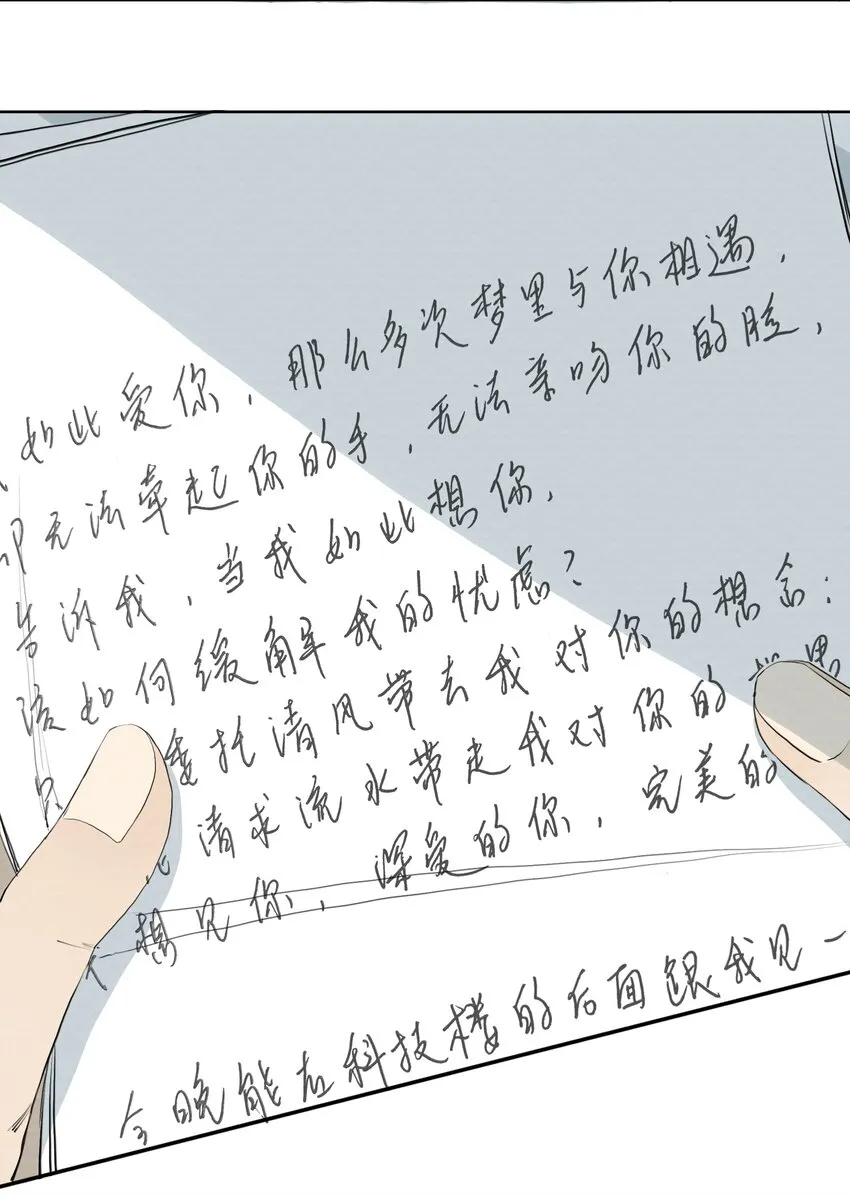 如此爱你，那么多次梦里与你相遇，
却无法牵起你的手，无法亲吻你的脸，
告诉我，当我如此想你，
该如何缓解我的忧虑？
委托清风带去我对你的想念：
请求流水带走我对你的
想见你，深爱的你，完美的
今晚能在科技楼的后面跟我见一